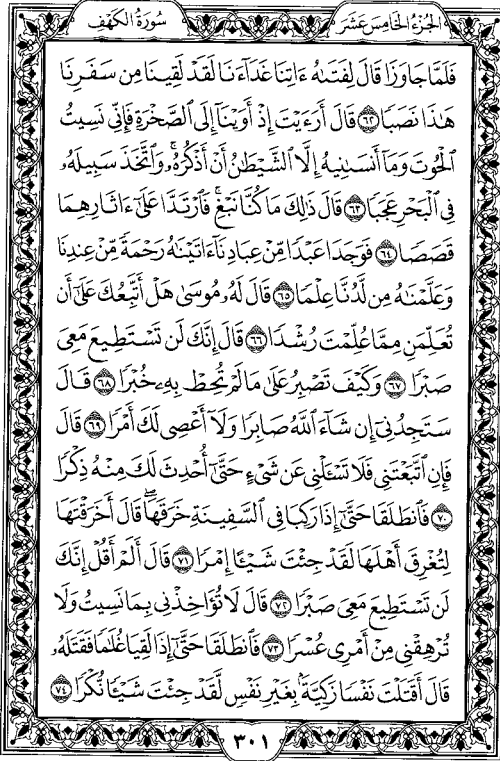 الجزء الخامس عشر
سورة الكهف
فَلَمَّا جَاوَزَا قَالَ لِفَتَىٰهُ ءَاتِنَا غَدَآءَنَا لَقَدْ لَقِينَا مِن سَفَرِنَا
هَٰذَا نَصَبًا ٦٢ قَالَ أَرَءَيْتَ إِذْ أَوَيْنَآ إِلَى ٱلصَّخْرَةِ فَإِنِّى نَسِيتُ
ٱلْحُوتَ وَمَآ أَنسَىٰنِيهُ إِلَّا ٱلشَّيْطَٰنُ أَنْ أَذْكُرَهُۥ ۚ وَٱتَّخَذَ سَبِيلَهُۥ
فِى ٱلْبَحْرِ عَجَبًا ٦٣ قَالَ ذَٰلِكَ مَا كُنَّا نَبْغِ ۚ فَٱرْتَدَّا عَلَىٰٓ ءَاثَارِهِمَا
قَصَصًا ٦٤ فَوَجَدَا عَبْدًا مِّنْ عِبَادِنَآ ءَاتَيْنَٰهُ رَحْمَةً مِّنْ عِندِنَا
وَعَلَّمْنَٰهُ مِن لَّدُنَّا عِلْمًا ٦٥ قَالَ لَهُۥ مُوسَىٰ هَلْ أَتَّبِعُكَ عَلَىٰٓ أَن
تُعَلِّمَنِ مِمَّا عُلِّمْتَ رُشْدًا ٦٦ قَالَ إِنَّكَ لَن تَسْتَطِيعَ مَعِىَ
صَبْرًا ٦٧ وَكَيْفَ تَصْبِرُ عَلَىٰ مَا لَمْ تُحِطْ بِهِۦ خُبْرًا ٦٨ قَالَ
سَتَجِدُنِىٓ إِن شَآءَ ٱللَّهُ صَابِرًا وَلَآ أَعْصِى لَكَ أَمْرًا ٦٩ قَالَ
فَإِنِ ٱتَّبَعْتَنِى فَلَا تَسْـَٔلْنِى عَن شَىْءٍ حَتَّىٰٓ أُحْدِثَ لَكَ مِنْهُ ذِكْرًا
٧٠ فَٱنطَلَقَا حَتَّىٰٓ إِذَا رَكِبَا فِى ٱلسَّفِينَةِ خَرَقَهَا ۖ قَالَ أَخَرَقْتَهَا
لِتُغْرِقَ أَهْلَهَا لَقَدْ جِئْتَ شَيْـًٔا إِمْرًا ٧١ قَالَ أَلَمْ أَقُلْ إِنَّكَ
لَن تَسْتَطِيعَ مَعِىَ صَبْرًا ٧٢ قَالَ لَا تُؤَاخِذْنِى بِمَا نَسِيتُ وَلَا
تُرْهِقْنِى مِنْ أَمْرِى عُسْرًا ٧٣ فَٱنطَلَقَا حَتَّىٰٓ إِذَا لَقِيَا غُلَٰمًا فَقَتَلَهُۥ
قَالَ أَقَتَلْتَ نَفْسًا زَكِيَّةًۢ بِغَيْرِ نَفْسٍ لَّقَدْ جِئْتَ شَيْـًٔا نُّكْرًا ٧٤
٣٠١